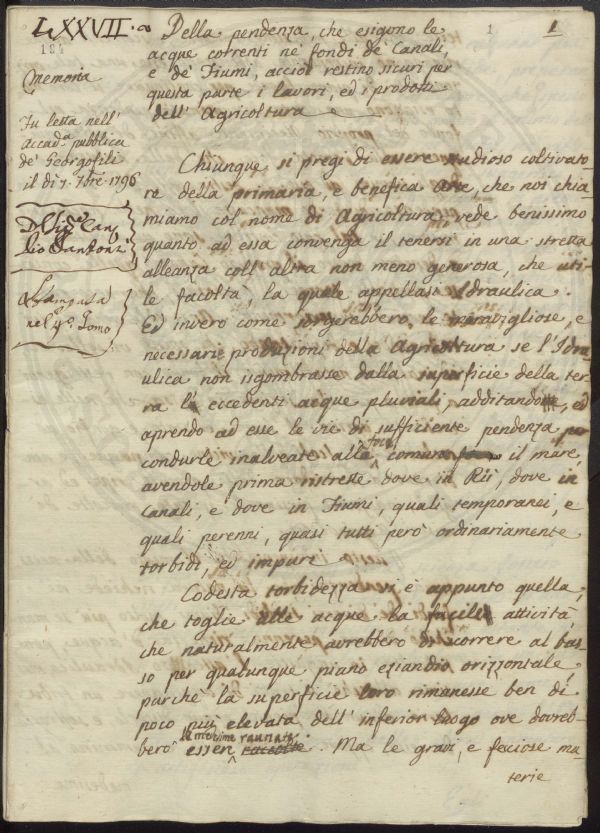 LXXVII.a
184
Memoria
Fu letta nell'
Accad.a pubblica
de' Georgofili
il dì 7. 7bre. 1796
Del Sig.e Can.
lio Fantoni
Stampata
nel 4.o Tomo
1 1
Della pendenza, che esigono le
acque correnti ne' fondi de' Canali,
e de' Fiumi, acciò restino sicuri per
questa parte i lavori, ed i prodotti
dell' Agricoltura
Chiunque si pregi di essere studioso coltivato-
re della primaria, e benefica Arte, che noi chia-
miamo col nome di Agricoltura, vede benissimo
quanto ad essa convenga il tenersi in una stretta
alleanza coll' altra non meno generosa, che uti-
le facoltà, la quale appellasi Idraulica.
Ed invero come sorgerebbero le maravigliose, e
necessarie produzioni della Agricoltura se l'Idra-
ulica non isgombrasse dalla superficie della ter-
ra le eccedenti acque pluviali, additando, ed
aprendo ad esse le vie di sufficiente pendenza per
condurle inalveate alla foce comune il mare,
avendole prima ristrette dove in Rii, dove in
Canali, e dove in Fiumi, quali temporanei, e
quali perenni, quasi tutti però ordinariamente
torbidi, ed impuri
Codesta torbidezza si è appunto quella,
che toglie alle acque la facile attività,
che naturalmente avrebbero di scorrere al bas-
so per qualunque piano eziandio orizzontale,
purchè la superficie loro rimanesse ben di
poco più elevata dell' inferior luogo ove dovreb-
bero esser medesime raunate raccolte. Ma le gravi, e fecciose ma-
terie